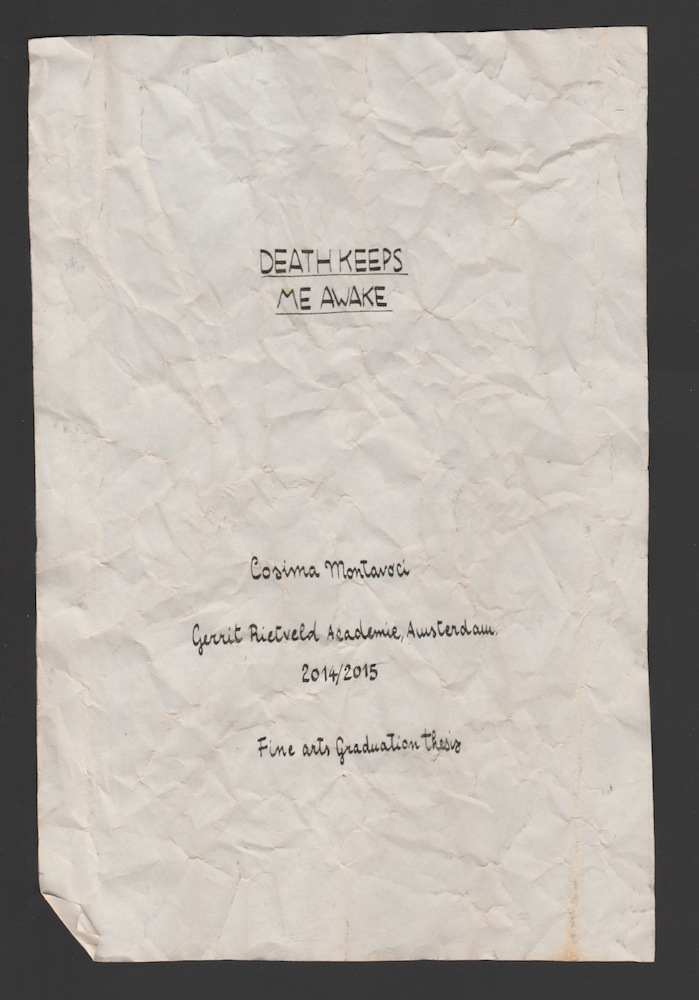 DEATH KEEPS
ME AWAKE
Cosima Montavoci
Gerrit Rietveld Academie, Amsterdam.
2014/2015
Fine arts Graduation thesis